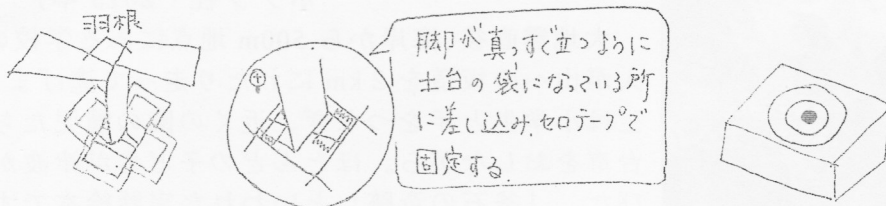 羽根
脚が真っすぐ立つように
土台の袋になっている所
に差し込み、セロテープで
固定する